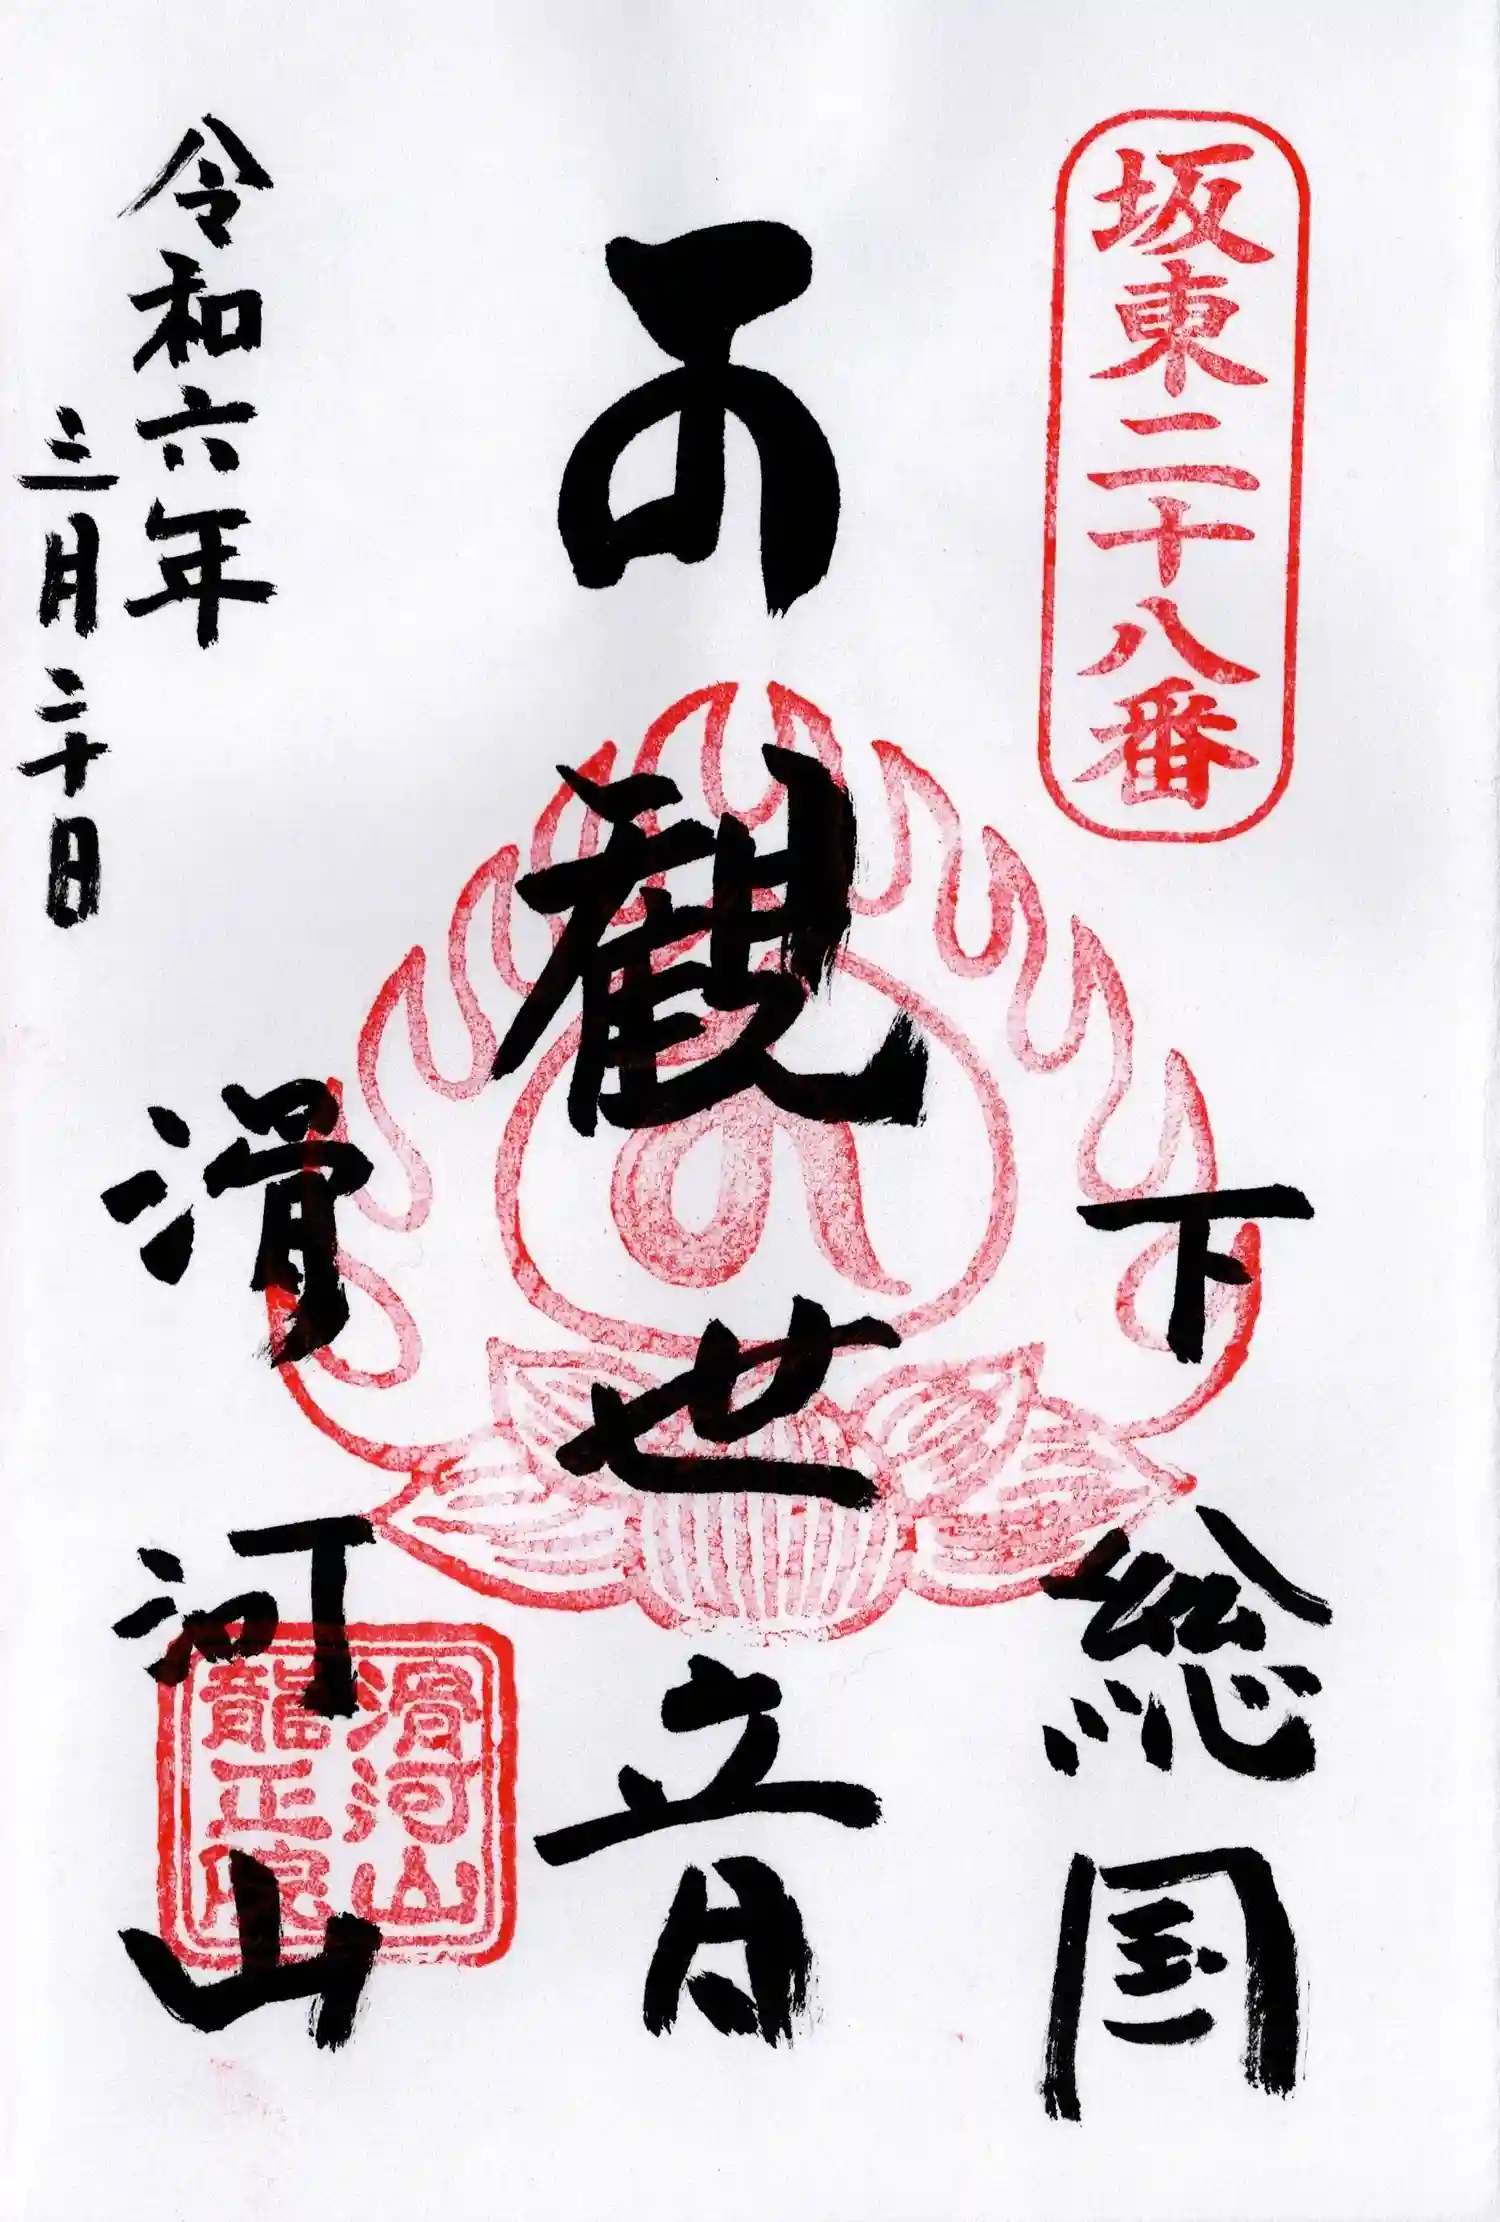 坂東二十八番
下総国
観世音
滑河山
滑河山
龍正院
令和六年
三月二十日